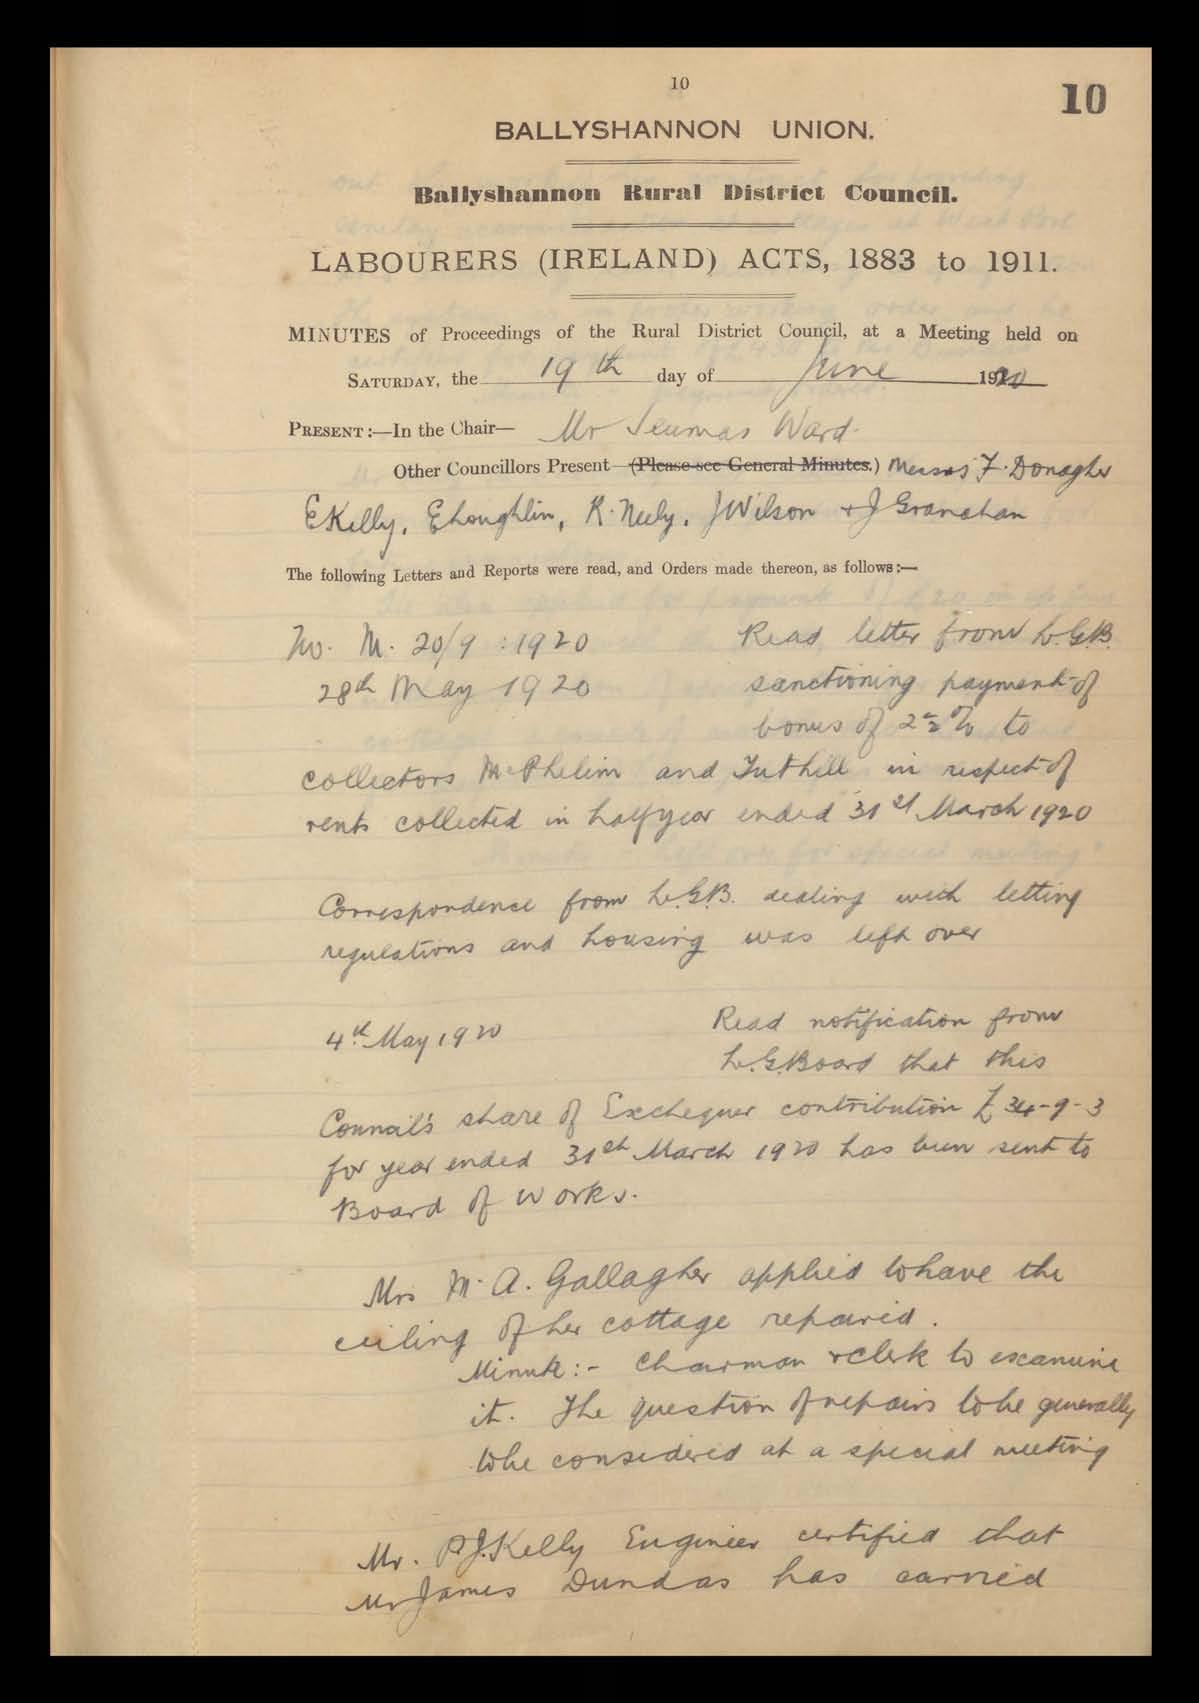 10
10
BALLYSHANNON UNION.
Ballyshannon Rural District Council.
LABOURERS (IRELAND) ACTS, 1883 to 1911.
MINUTES of Proceedings of the Rural District Council, at a Meeting held on
SATURDAY, the 19th day of June 1920
PRESENT:—In the Chair— Mr Seumas Ward.
Other Councillors Present—(Please see General Minutes.) Messrs F. Donagher
E Kelly, E Loughlin, R. Neely, J Wilson + J Granahan
The following Letters and Reports were read, and Orders made thereon, as follows:—
No. M. 20/9 : 1920 Read letter from L.G.B.
28th May 1920 sanctioning payment of
bonus of 2½% to
collectors McPhelim and Tuthill in respect of
rents collected in half year ended 31st March 1920
Correspondence from L.G.B. dealing with letting
regulations and housing was left over
4th May 1920 Read notification from
L.G.Board that this
Council's share of Exchequer contribution £34-9-3
for year ended 31st March 1920 has been sent to
Board of Works.
Mrs M. A. Gallagher applied to have the
ceiling of her cottage repaired.
Minute:- Chairman + clerk to examine
it. The question of repairs to be generally
to be considered at a special meeting
Mr. P.J. Kelly Engineer certified that
Mr James Dundas has carried